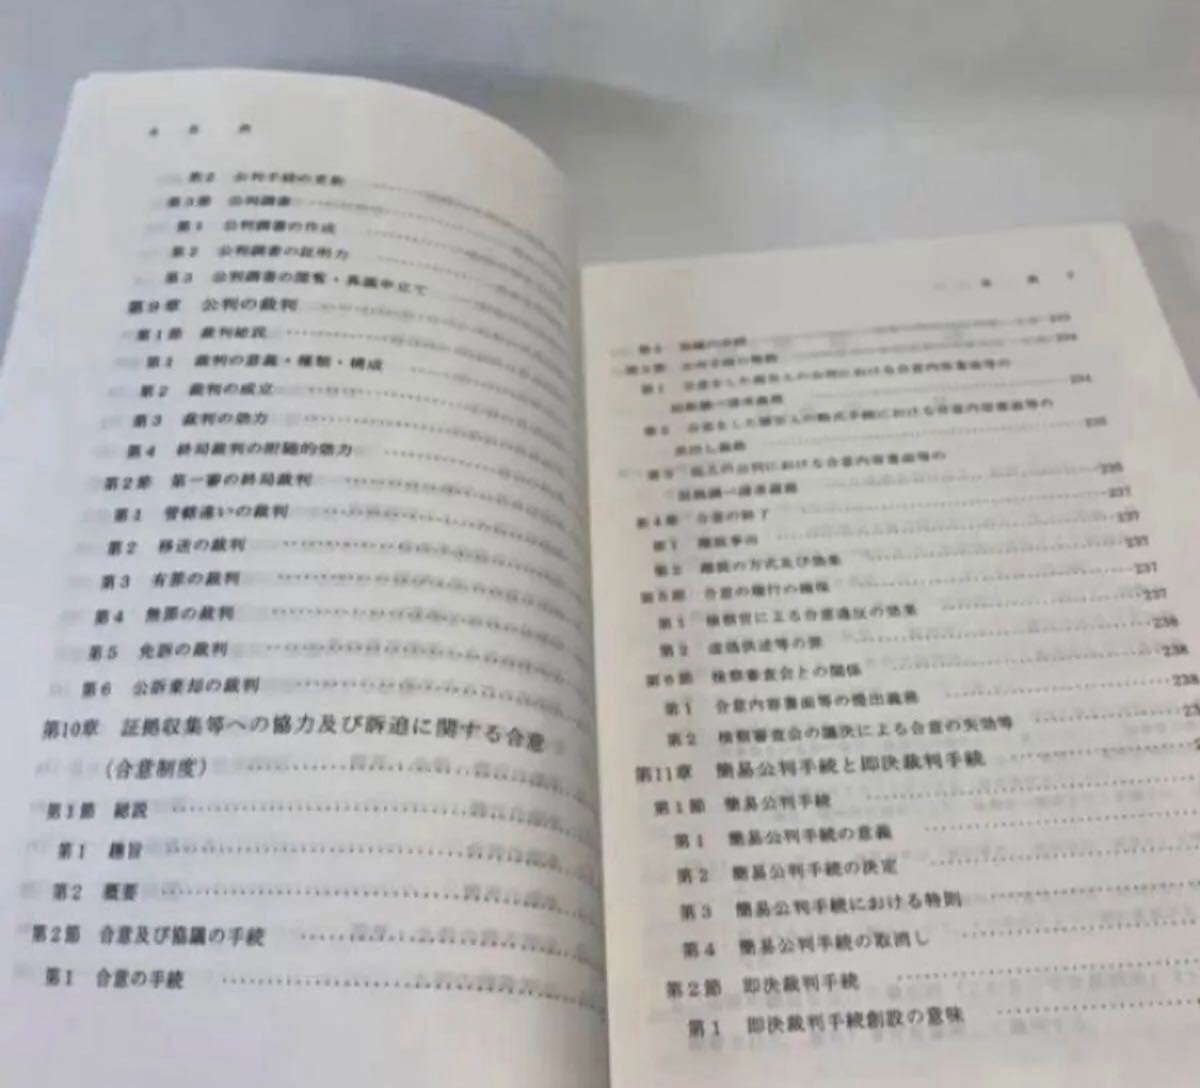 第2 公判手続の更新
第3節 公判調書
第1 公判調書の作成
第2 公判調書の証明力
第3 公判調書の閲覧・異議申立て
第9章 公判の裁判
第1節 裁判総説
第1 裁判の意義・種類・構成
第2 裁判の成立
第3 裁判の効力
第4 終局裁判の附随的効力
第2節 第一審の終局裁判
第1 管轄違いの裁判
第2 移送の裁判
第3 有罪の裁判
第4 無罪の裁判
第5 免訴の裁判
第6 公訴棄却の裁判
第10章 証拠収集等への協力及び訴追に関する合意
(合意制度)
第1節 総説
第1 趣旨
第2 概要
第2節 合意及び協議の手続
第1 合意の手続
234
第1 合意をした被告人の公判における合意内容書面等の
証拠調べ請求義務 234
合意をした被告人の略式手続における合意内容書面等の
差出し義務 235
第3 他人の公判における合意内容書面等の
証拠調べ請求義務 235
第4節 合意の終了 237
第1 離脱事由 237
第2 離脱の方式及び効果 237
第5節 合意の履行の確保 237
第1 検察官による合意違反の効果 237
第2 虚偽供述等の罪 238
第6節 検察審査会との関係 238
第1 合意内容書面等の提出義務 238
第2 検察審査会の議決による合意の失効等
第11章 簡易公判手続と即決裁判手続
第1節 簡易公判手続
第1 簡易公判手続の意義
第2 簡易公判手続の決定
第3 簡易公判手続における特則
第4 簡易公判手続の取消し
第2節 即決裁判手続
第1 即決裁判手続創設の意味